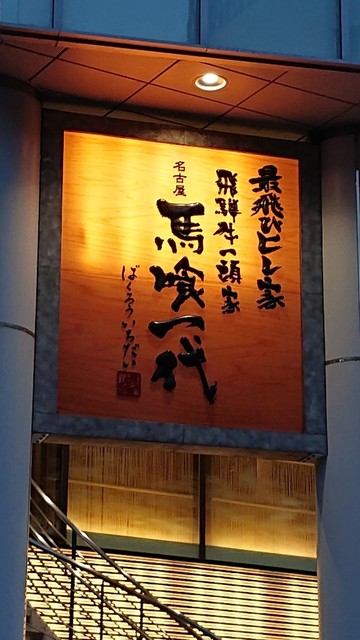 最飛びとし家
飛騨牛一頭家
名古屋
馬喰一代
ばくろういちだい